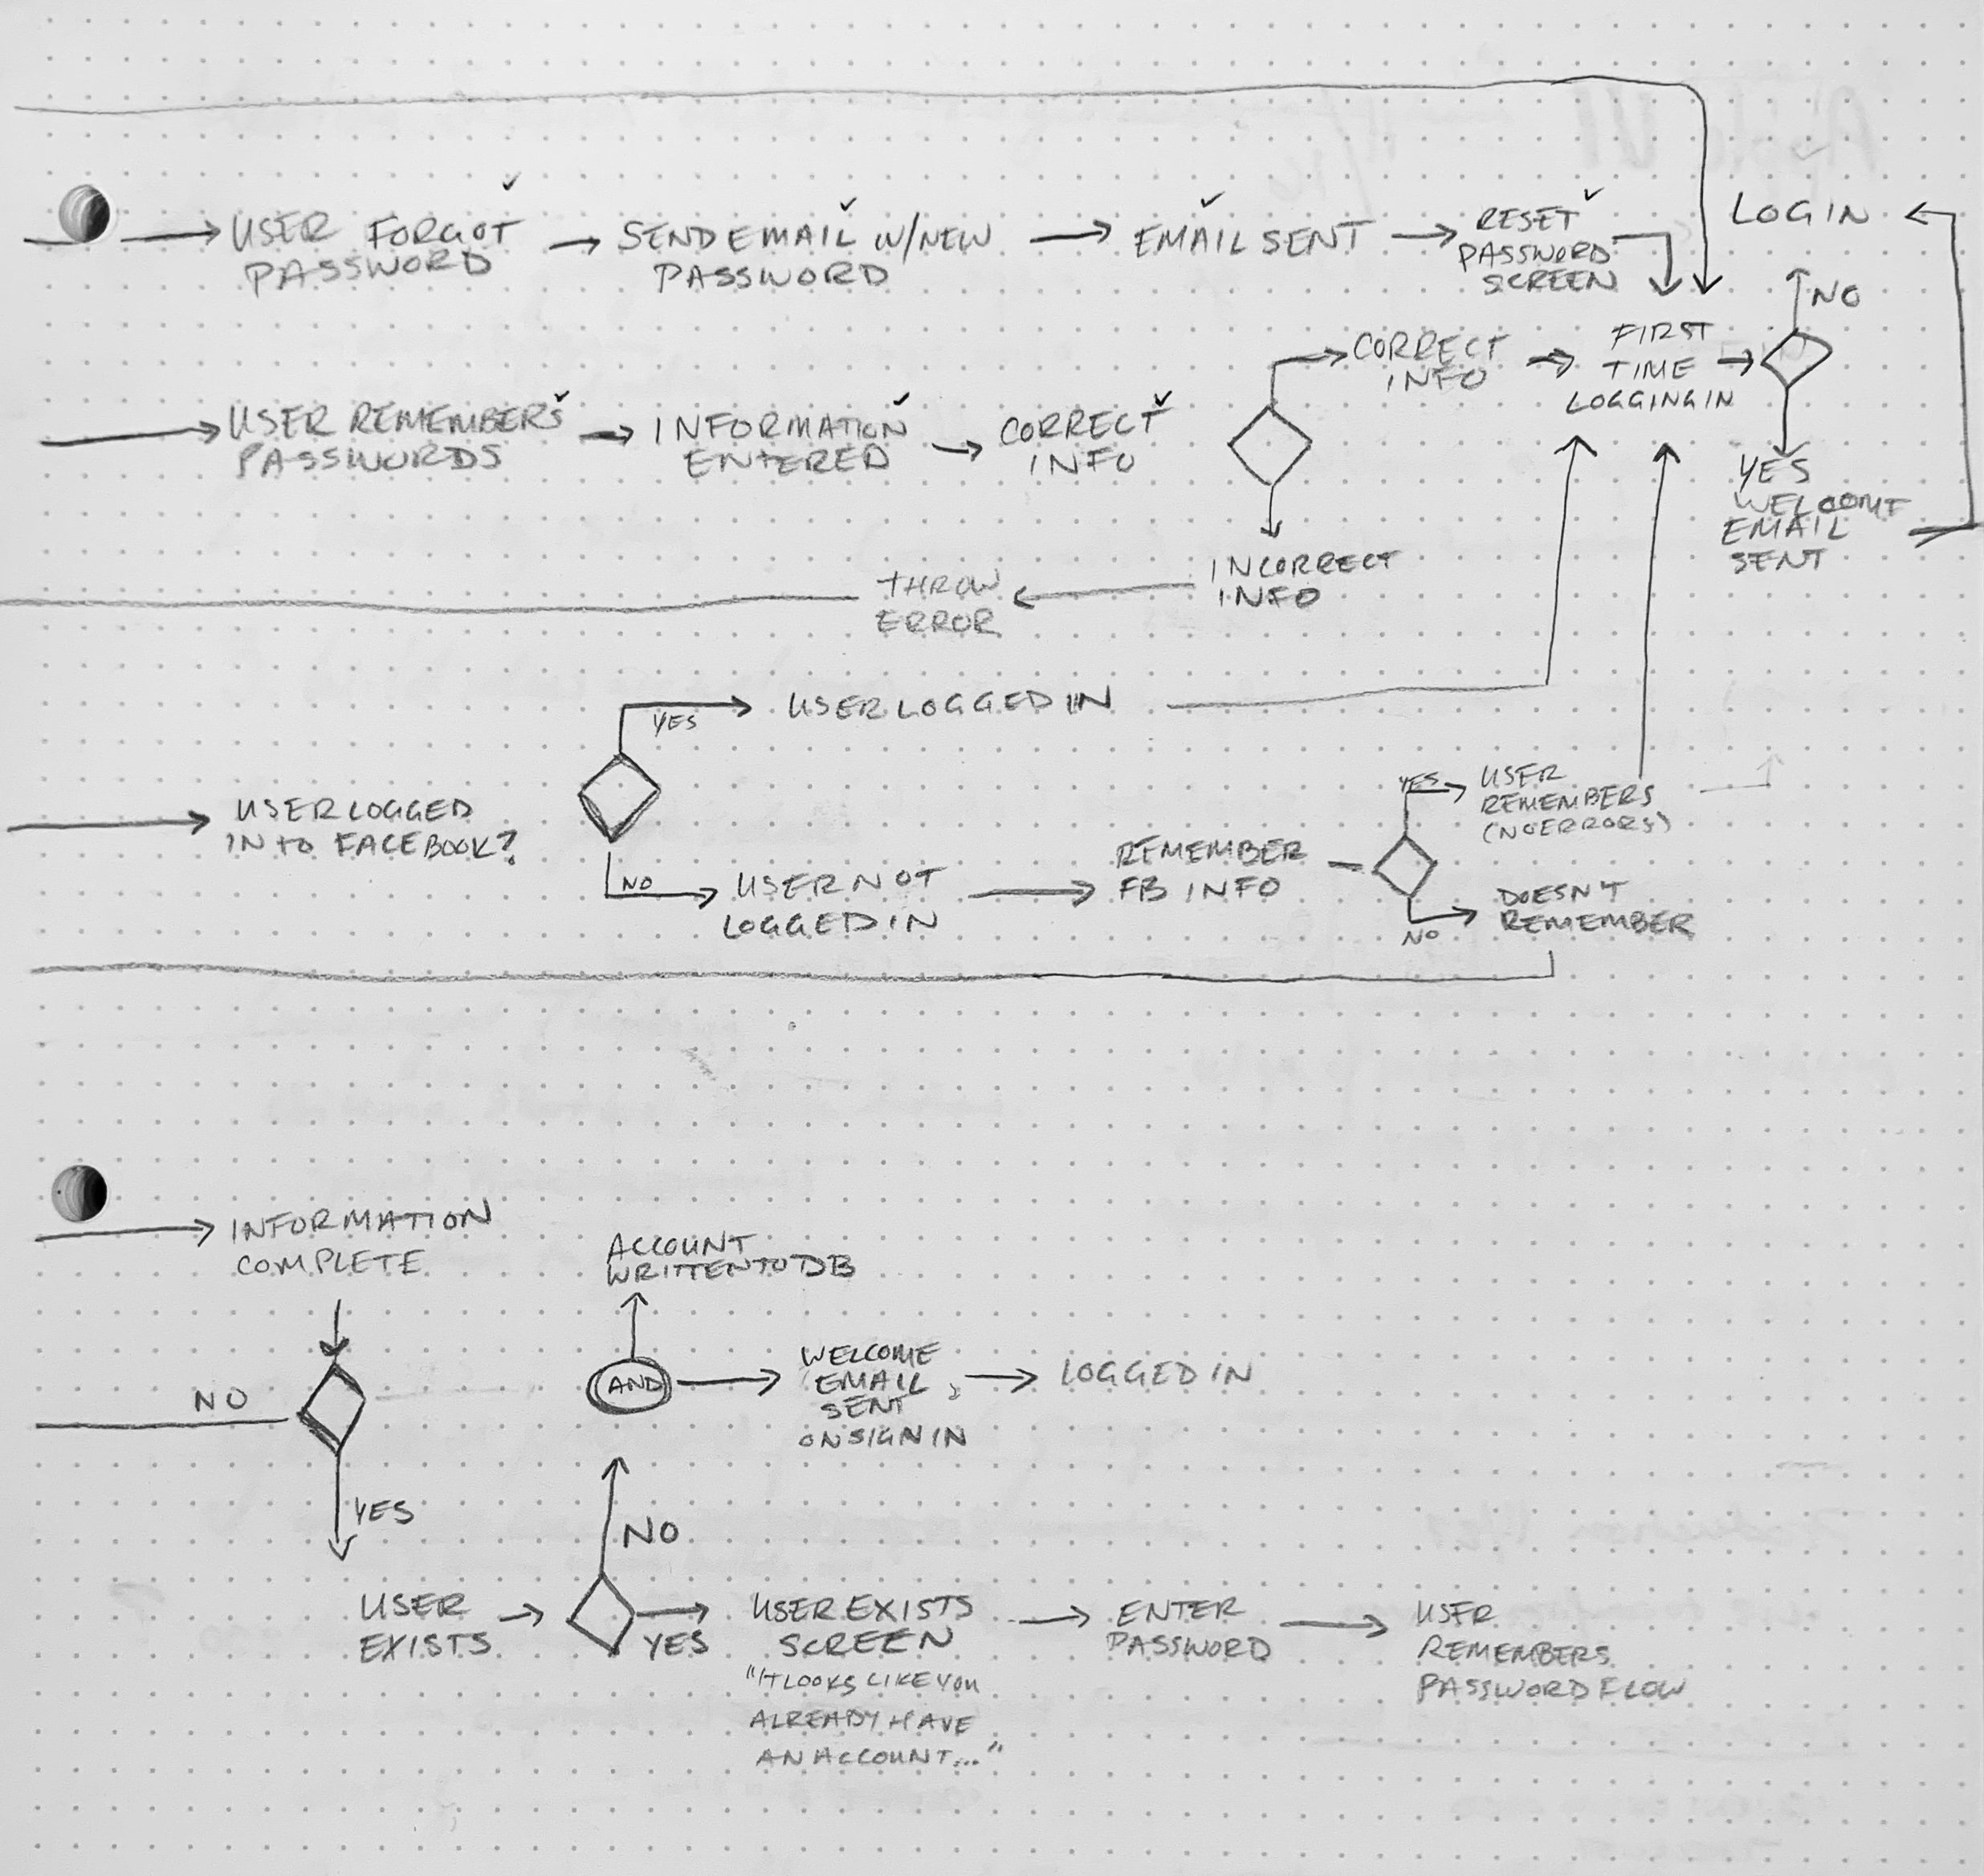 USER FORGOT
PASSWORD
SEND EMAIL W/NEW
PASSWORD
EMAIL SENT
RESET
PASSWORD
SCREEN
LOGIN
NO
USER REMEMBERS
PASSWORDS
INFORMATION
ENTERED
CORRECT
INFO
CORRECT
INFO
FIRST
TIME
LOGGING IN
YES
WELCOME
EMAIL
SENT
INCORRECT
INFO
THROW
ERROR
YES
USER LOGGED IN
USER LOGGED
INTO FACEBOOK?
NO
USER NOT
LOGGED IN
REMEMBER
FB INFO
YES
USER
REMEMBERS
(NO ERRORS)
NO
DOESN'T
REMEMBER
INFORMATION
COMPLETE
NO
YES
ACCOUNT
WRITTEN TO DB
AND
WELCOME
EMAIL
SENT
ON SIGN IN
LOGGED IN
NO
USER
EXISTS
YES
USER EXISTS
SCREEN
"IT LOOKS LIKE YOU
ALREADY HAVE
AN ACCOUNT..."
ENTER
PASSWORD
USER
REMEMBERS
PASSWORD FLOW